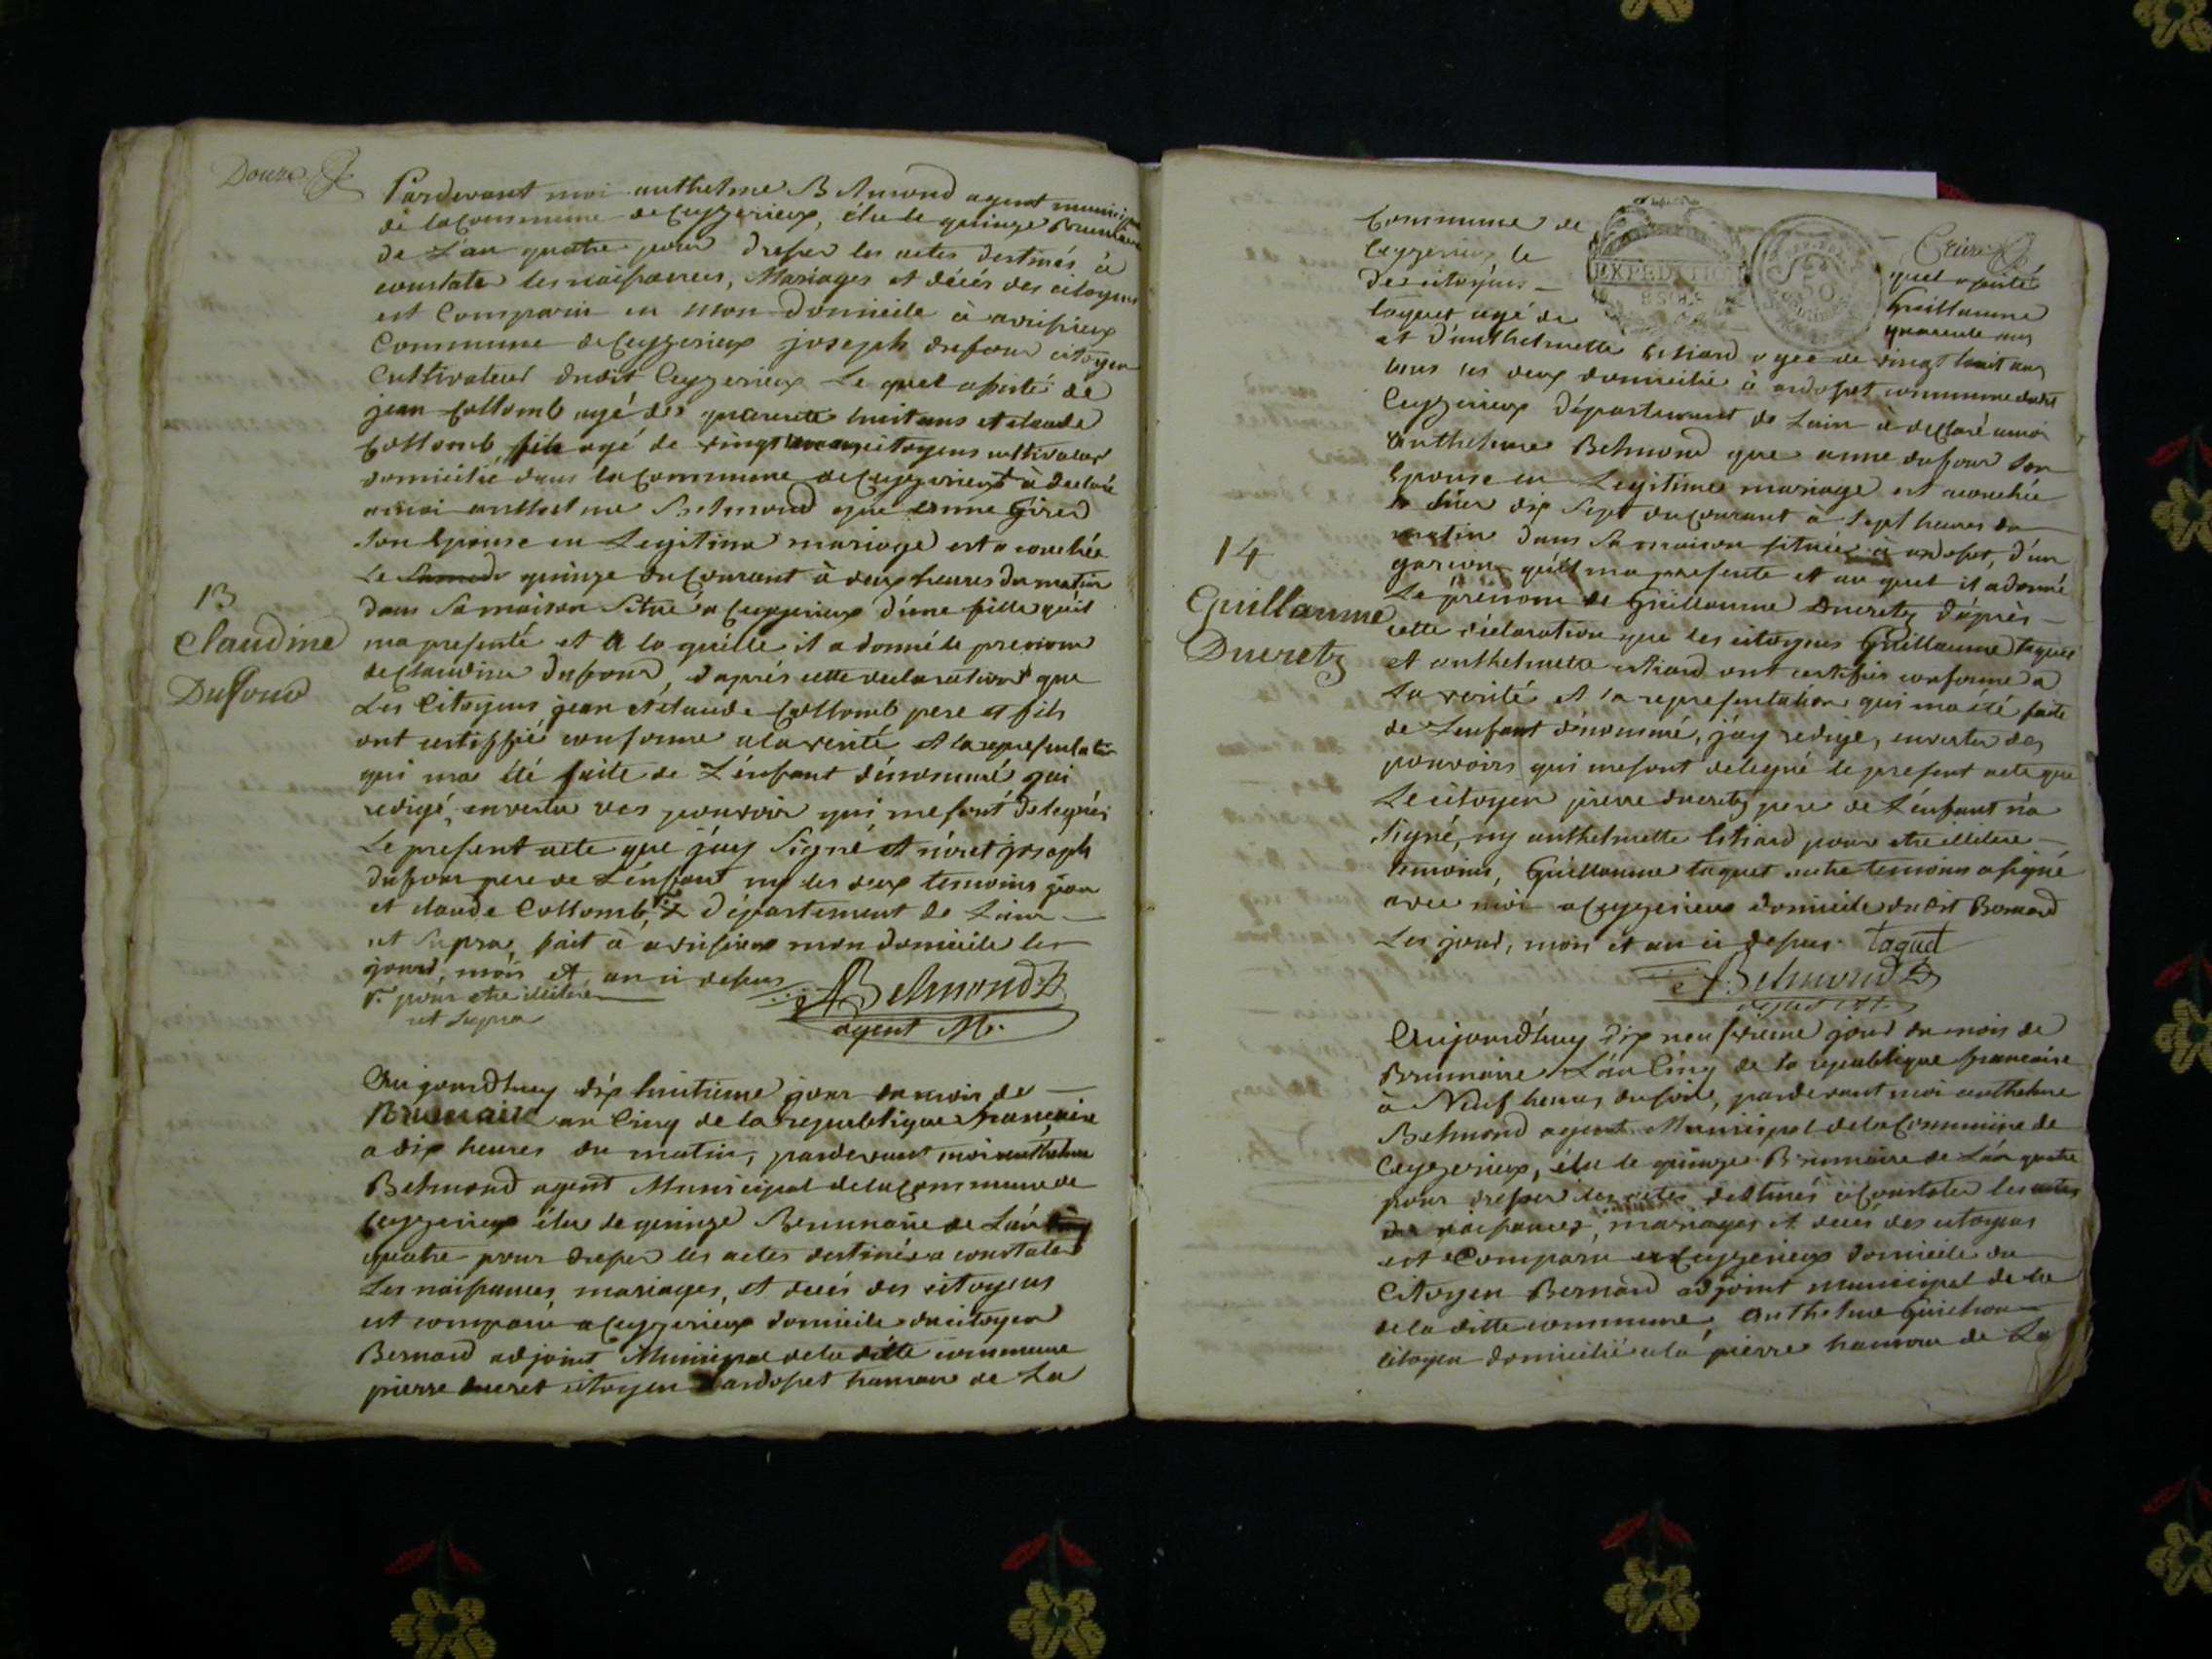 Douze
Pardevant moi anthelme Belmond agent munici
de la Commune de Ceyzerieux, élu le quinze Brumaire
de L'an quatre pour dresser les actes destinés à
constater les naissances, Mariages et décés des citoyens
est Comparu en mon domicile à avrissieux
Commune de Ceyzerieux joseph dufour citoyen
Cultivateur dudit Ceyzerieux Le quel assisté de
jean Collomb agé de quarente huit ans et claude
Collomb fils agé de vingt citoyens cultivateur
domicilié dans la Commune de Ceyzerieux à declaré
a moi anthelme Belmond que anne Girer
son Epouse en Legitime mariage est acouchée
Le Samedi quinze du Courant à deux heures du matin
dans Sa maison Situé a Ceyzerieux d'une fille quil
ma presenté et a la quelle il a donné le prenom
de claudine dufour, d'aprés cette declaration que
Les Citoyens jean et claude Collomb pere et fils
ont certiffié conforme a la verité et la representation
qui ma été faite de L'énfant dénommé jai
redigé, en vertu des pouvoir qui me sont delegués
Le present acte que j'ay Signé et non joseph
dufour pere de L'énfant ny les deux temoins jean
et claude Collomb, département de Lain
ut Supra, fait à avrissieux mon domicile les
jours, mois et an ci dessus
pour etre illiteré
ut Supra
ABelmond
agent M.
13
Claudine
Dufour
Aujourdhuy dix huitieme jour du mois de
Brumaire an Cinq de la republique francaise
a dix heures du matin, pardevant moi anthelme
Belmond agent Municipal de la Commune de
Ceyzerieux élu le quinze Brumaire de L'án
quatre pour dresser les actes destinés a constater
Les naissances, mariages, et decés des citoyens
est comparu a Ceyzerieux domicile du citoyen
Bernard adjoint Municipal de la ditte commune
pierre ducret citoyen d'ardosset hameau de La
Commune de
Ceyzerieux, le
Des citoyens
taquet agé de
EXPEDITION
8 SOLS
50
Treize
quel assisté
Guillaume
quarente ans
et d'anthelmette agée de vingt huit ans
tous les deux domicilié à ardosset commune dudit
Ceyzerieux Département de Lain à declaré a moi
Anthelme Belmond que anne dufour Son
Epouse en Legitime mariage est acouchée
hier dix Sept du Courant à Sept heures du
matin dans Sa maison située à ardosset, d'un
garcon quil ma presenté et au quel il a donné
Le prénom de Guillaume Ducretz d'après
cette déclaration que les citoyens Guillaume taquet
et anthelmette ont certifiés conforme a
La verité et la representation qui ma été faite
de L'enfant dénommé, j'ay redigé, en vertu des
pouvoirs qui me sont delegué le present acte que
Le citoyen pierre ducretz pere de L'énfant n'a
signé, ny anthelmette pour etre illitere
temoins, Guillaume taquet autre temoins a signé
avec moi a Ceyzerieux domicile dudit Bernard
Les jours, mois et an ci dessus. taquet
ABelmond
agent M.
14
Guillaume
Ducretz
Aujourdhuy dix neufvieme jour du mois de
Brumaire L'án Cinq de la republique francaise
à Neuf heures du soir, pardevant moi anthelme
Belmond agent Municipal de la Commune de
Ceyzerieux, élu le quinze Brumaire de L'án quatre
pour dresser les actes destinés à Constater les actes
de naissances, mariages et decés des citoyens
est Comparu a Ceyzerieux domicile du
Citoyen Bernard adjoint municipal de la
de la ditte commune, anthelme Guichon
citoyen domicilié a la pierre hameau de La